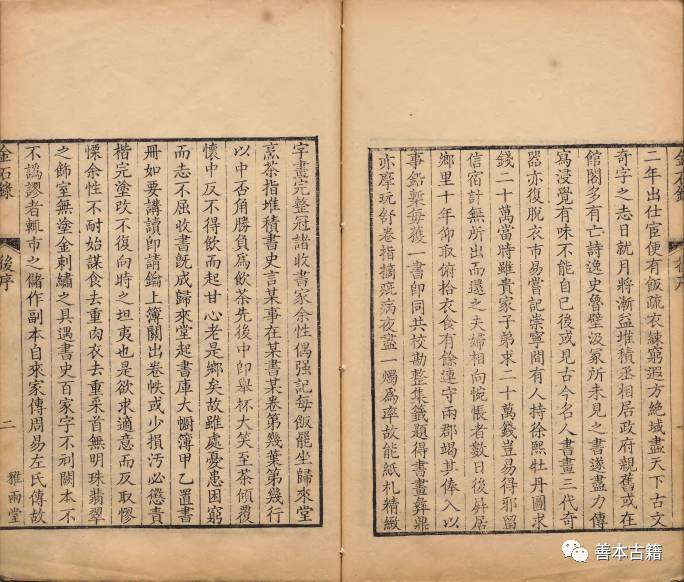 金石錄 後序
二年出仕宦便有飯疏衣練窮遐方絶域盡天下古文
奇字之志日就月將漸益堆積丞相居政府親舊或在
館閣多有亡詩逸史魯壁汲冢所未見之書遂盡力傳
寫浸覺有味不能自已後或見古今名人書畫三代奇
器亦復脫衣市易嘗記崇寧間有人持徐熙牡丹圖求
錢二十萬當時雖貴家子弟求二十萬錢豈易得邪留
信宿計無所出而還之夫婦相向惋悵者數日後屏居
鄉里十年仰取俯拾衣食有餘連守兩郡竭其俸入以
事鉛槧每獲一書即同共校勘整集籤題得書畫彝鼎
亦摩玩舒卷指摘疵病夜盡一燭爲率故能紙札精緻
字畫完整冠諸收書家余性偶强記每飯罷坐歸來堂
烹茶指堆積書史言某事在某書某卷第幾葉第幾行
以中否角勝負爲飲茶先後中卽舉杯大笑至茶傾覆
懷中反不得飲而起甘心老是鄉矣故雖處憂患困窮
而志不屈收書旣成歸來堂起書庫大櫥簿甲乙置書
冊如要講讀卽請鑰上簿關出卷帙或少損汚必懲責
楷完塗改不復向時之坦夷也是欲求適意而反取憀
慄余性不耐始謀食去重肉衣去重采首無明珠翡翠
之飾室無塗金刺繡之具遇書史百家字不刓闕本不
不譌謬者輒市之儲作副本自來家傳周易左氏傳故
金石錄 後序 二 雅雨堂
善本古籍